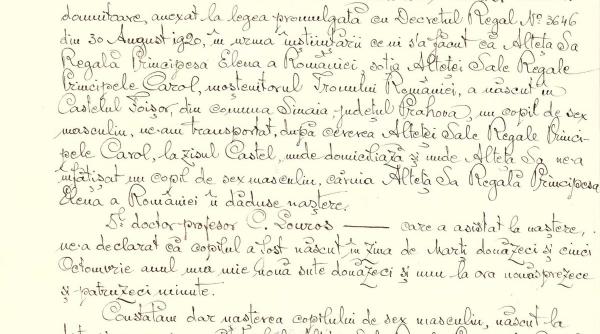 domnitoare, anexat la legea promulgată cu Decretul Regal Nº 3646
din 30 August 1920, în urma înștiințării ce ni s'a făcut că Alteța Sa
Regală Principesa Elena a României, soția Alteței Sale Regale
Principele Carol, moștenitorul Tronului României, a născut în
Castelul Foișor, din comuna Sinaia, județul Prahova, un copil de sex
masculin, ne-am transportat, după cererea Alteței Sale Regale Princi-
pele Carol, la zisul Castel, unde domiciliază și unde Alteța Sa ne-a
înfățișat un copil de sex masculin, căruia Alteța Sa Regală Principesa
Elena a României îi dăduse naștere.
Dl doctor-profesor C. Louros —— care a asistat la naștere,
ne-a declarat că copilul a fost născut în ziua de Marți douăzeci și cinci
Octomvrie anul una mie nouă sute douăzeci și unu la ora nouăsprezece
și patruzeci minute.
Constatăm dar nașterea copilului de sex masculin, născut la